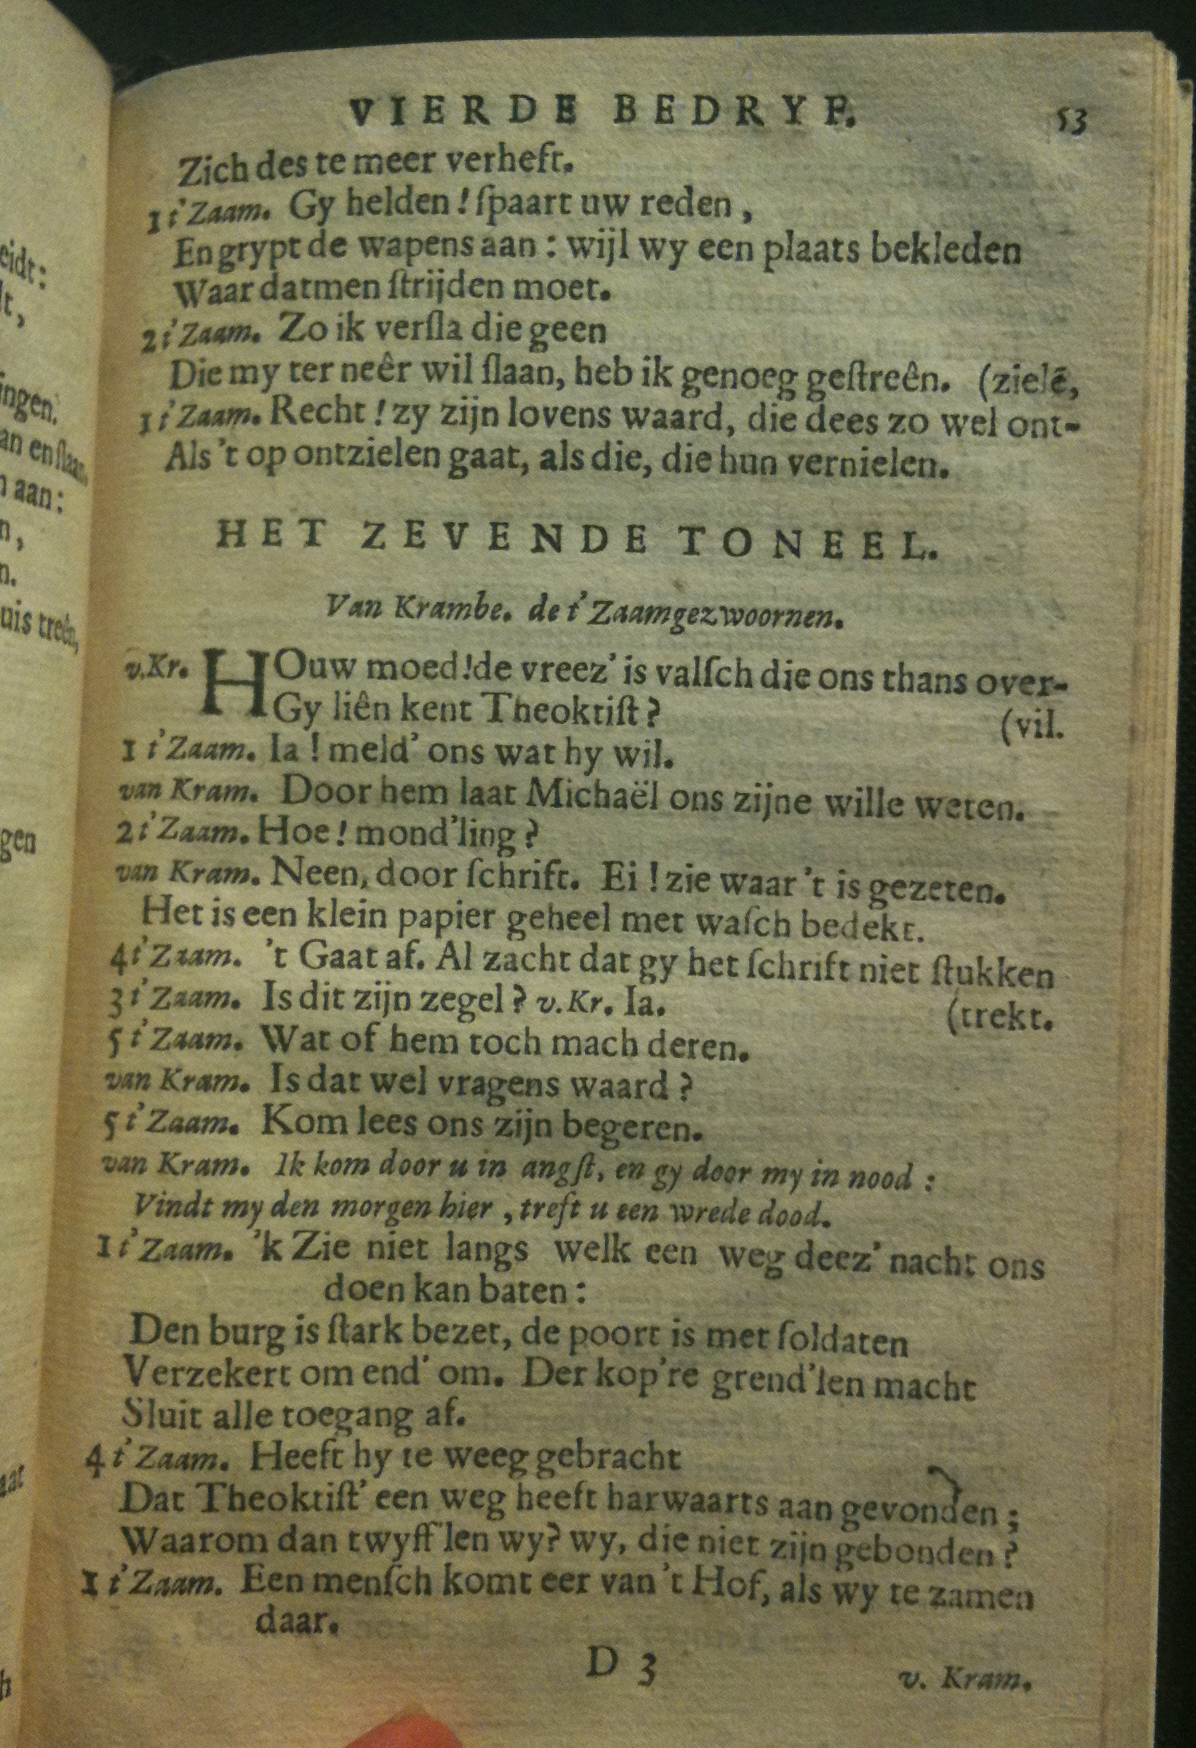 VIERDE BEDRYF. 53
Zich des te meer verheft.
1 t'Zaam. Gy helden! ſpaart uw reden,
En grypt de wapens aan: wijl wy een plaats bekleden
Waar datmen ſtrijden moet.
2 t'Zaam. Zo ik verſla die geen
Die my ter neêr wil ſlaan, heb ik genoeg geſtreên. (zielē,
1 t'Zaam. Recht! zy zijn lovens waard, die dees zo wel ont-
Als 't op ontzielen gaat, als die, die hun vernielen.
HET ZEVENDE TONEEL.
Van Krambe. de t'Zaamgezwoornen.
v.Kr. HOuw moed! de vreez' is valſch die ons thans over-
Gy liên kent Theoktiſt? (vil.
1 t'Zaam. Ia! meld' ons wat hy wil.
van Kram. Door hem laat Michaël ons zijne wille weten.
2 t'Zaam. Hoe! mond'ling?
van Kram. Neen, door ſchrift. Ei! zie waar 't is gezeten.
Het is een klein papier geheel met waſch bedekt.
4 t'Zaam. 't Gaat af. Al zacht dat gy het ſchrift niet ſtukken
3 t'Zaam. Is dit zijn zegel? v.Kr. Ia. (trekt.
5 t'Zaam. Wat of hem toch mach deren.
van Kram. Is dat wel vragens waard?
5 t'Zaam. Kom lees ons zijn begeren.
van Kram. Ik kom door u in angſt, en gy door my in nood:
Vindt my den morgen hier, treft u een wrede dood.
1 t'Zaam. 'k Zie niet langs welk een weg deez' nacht ons
doen kan baten:
Den burg is ſtark bezet, de poort is met ſoldaten
Verzekert om end' om. Der kop're grend'len macht
Sluit alle toegang af.
4 t'Zaam. Heeft hy te weeg gebracht
Dat Theoktiſt' een weg heeft harwaarts aan gevonden;
Waarom dan twyff'len wy? wy, die niet zijn gebonden?
1 t'Zaam. Een menſch komt eer van 't Hof, als wy te zamen
daar.
D 3 v. Kram.
eidt:
lt,
ingen.
an en ſlaan.
n aan:
n,
n.
uis treên,
gen
aat
h